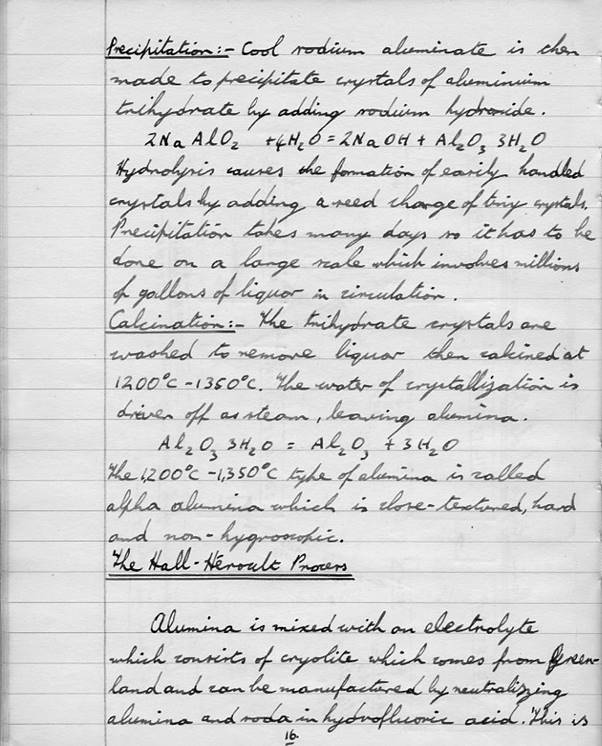 Precipitation:- Cool sodium aluminate is then
made to precipitate crystals of aluminium
trihydrate by adding sodium hydroxide.
2NaAlO₂ + 4H₂O = 2NaOH + Al₂O₃ 3H₂O
Hydrolysis causes the formation of easily handled
crystals by adding a seed charge of tiny crystals.
Precipitation takes many days so it has to be
done on a large scale which involves millions
of gallons of liquor in circulation.
Calcination:- The trihydrate crystals are
washed to remove liquor then calcined at
1200°C - 1350°C. The water of crystallization is
driven off as steam, leaving alumina.
Al₂O₃ 3H₂O = Al₂O₃ + 3H₂O
The 1,200°C - 1,350°C type of alumina is called
alpha alumina which is close-textured, hard
and non-hygroscopic.
The Hall-Héroult Process
Alumina is mixed with an electrolyte
which consists of cryolite which comes from Green-
land and can be manufactured by neutralizing
alumina and soda in hydrofluoric acid. This is
16.